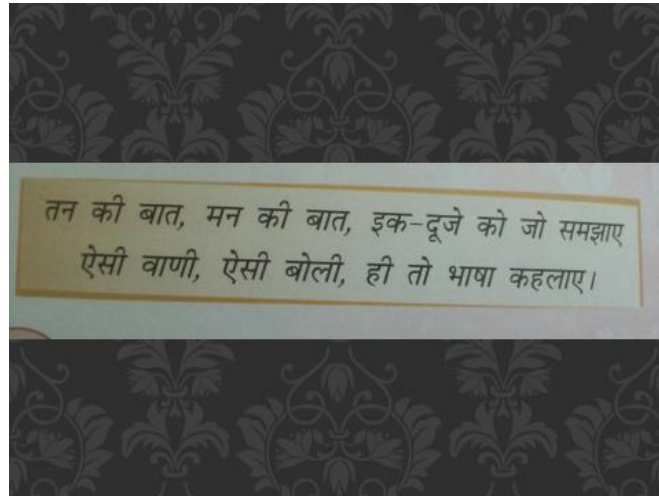 तन की बात, मन की बात, इक-दूजे को जो समझाए
ऐसी वाणी, ऐसी बोली, ही तो भाषा कहलाए।